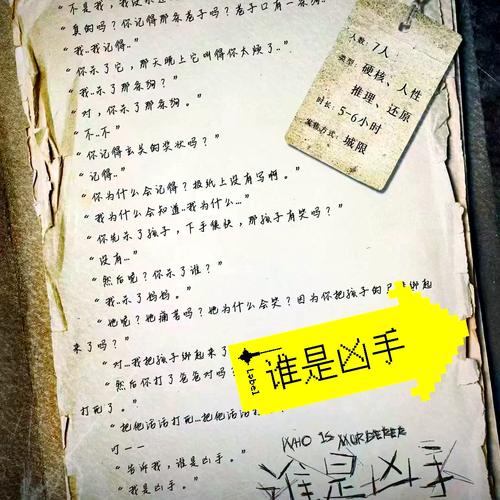 "真的吗？你记得那条巷子吗？巷子口有一条狗
"我..我记得.."
"你杀了它，那天晚上它叫得你太烦了.."
"我..杀了那条狗？"
"对，你杀了那条狗。"
"不..不"
"你记得玄关的奖状吗？"
"记得.."
"你为什么会记得？报纸上没有写啊。"
"我为什么会知道..我为什么..."
"你先杀了孩子，下手很快，那孩子有哭吗？"
"没有..."
"然后呢？你杀了谁？"
"我..杀了妈妈。"
"她呢？她痛苦吗？她为什么会哭？因为你把孩子的
来了吗？"
"对..我把孩子绑起来了
"然后你打了爸爸对吗？
打死了。"
"把他活活打死..把他活活
叮——
"告诉我，谁是凶手。"
"我是凶手。"
人数：7人
类型：硬核、人性
推理、还原
时长：5-6小时
发售方式：城限
Label
谁是凶手
WHO IS MURDERER
谁是凶手